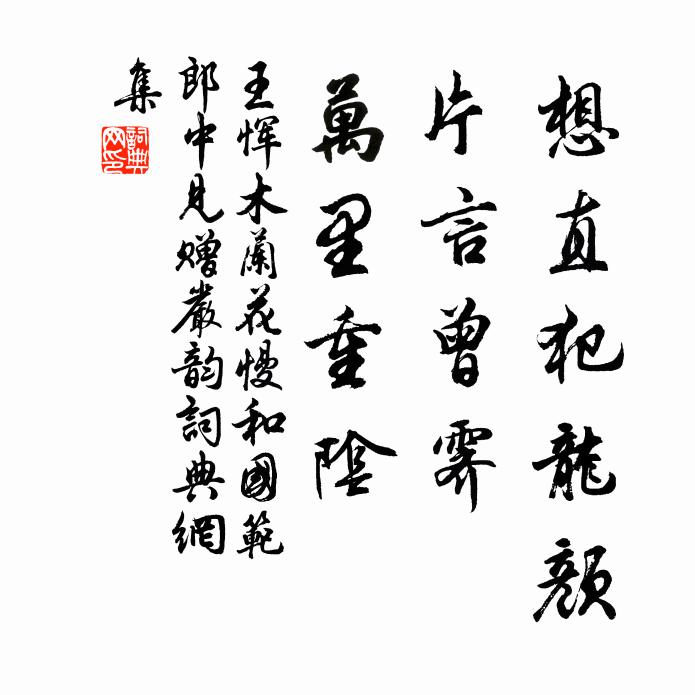 想直犯龍顏
片言曾霽
萬里重陰
王惲木蘭花慢和國範
郎中見贈嚴韵詞典網
集
詞典網印